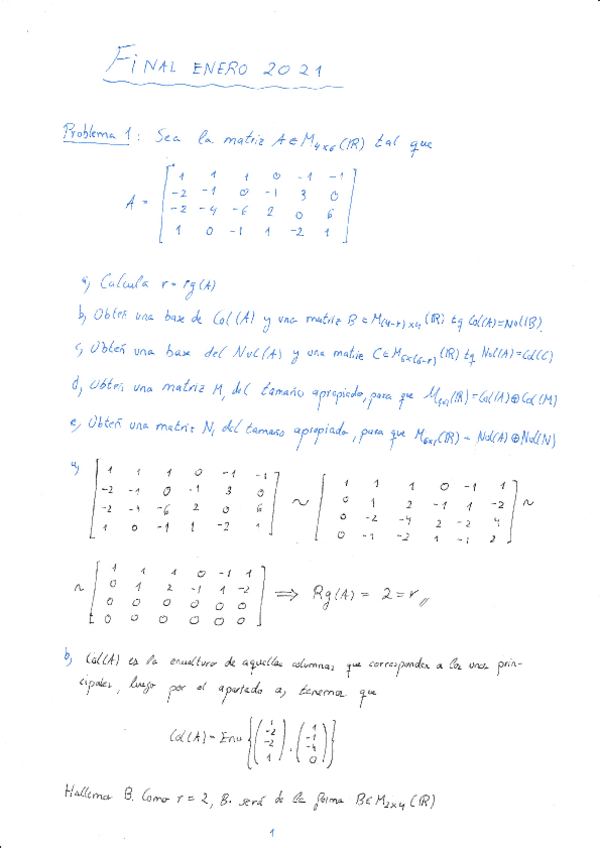 FINAL ENERO 2021
Problema 1: Sea la matriz A∈M4x6(IR) tal que
A = [ 1 1 1 0 -1 -1
-2 -1 0 -1 3 0
-2 -4 -6 2 0 6
1 0 -1 1 -2 1 ]
a) Calcula r = rg(A)
b) Obtén una base de Col(A) y una matriz B∈M(4-r)x4(IR) tq Col(A)=Nul(B).
c) Obtén una base del Nul(A) y una matriz C∈M6x(6-r)(IR) tq Nul(A)=Col(C)
d) Obtén una matriz M, del tamaño apropiado, para que M4x1(IR)=Col(A)⊕Col(M)
e) Obtén una matriz N, del tamaño apropiado, para que M6x1(IR) = Nul(A)⊕Nul(N)
a) [ 1 1 1 0 -1 -1 ] ~ [ 1 1 1 0 -1 1 ] ~
[ -2 -1 0 -1 3 0 ] [ 0 1 2 -1 1 -2 ]
[ -2 -4 -6 2 0 6 ] [ 0 -2 -4 2 -2 4 ]
[ 1 0 -1 1 -2 1 ] [ 0 -1 -2 1 -1 2 ]
~ [ 1 1 1 0 -1 1
0 1 2 -1 1 -2
0 0 0 0 0 0
0 0 0 0 0 0 ] ⟹ Rg(A) = 2 = r //
b) Col(A) es la envoltura de aquellas columnas que corresponden a los unos prin-
cipales, luego por el apartado a) tenemos que
Col(A) = Env { (1 -2 -2 1), (1 -1 -4 0) }
Hallemos B. Como r = 2, B. será de la forma B∈M2x4(IR)
1